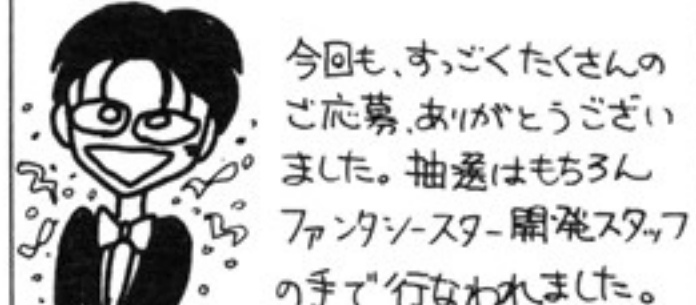 今回も、すっごくたくさんの
ご応募、ありがとうござい
ました。抽選はもちろん
ファンタシースター開発スタッフ
の手で行なわれました。